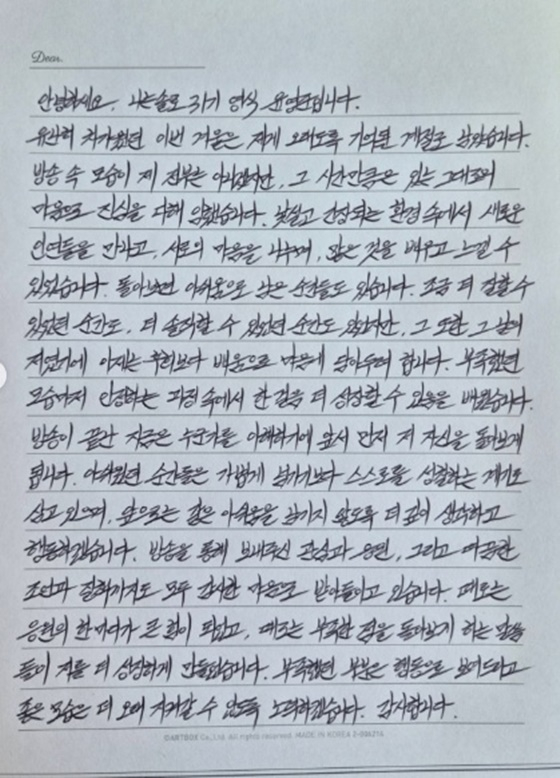 Dear.
안녕하세요. 나는솔로 31기 영식 입니다.
유난히 차가웠던 이번 겨울은 제게 오래도록 기억될 계절로 남았습니다.
방송 속 모습이 제 전부는 아니겠지만, 그 시간만큼은 있는 그대로의
마음으로 진심을 다해 임했습니다. 낯설고 긴장되는 환경 속에서 새로운
인연들을 만나고, 서로의 마음을 나누며, 많은 것을 배우고 느낄 수
있었습니다. 돌아보면 아쉬움으로 남은 순간들도 있습니다. 조금 더 잘할 수
있었던 순간도, 더 솔직할 수 있었던 순간도 있었지만, 그 또한 그 날의
저였기에 이제는 후회보다 배움으로 마음에 담아두려 합니다. 부족했던
모습마저 인정하는 과정 속에서 한 걸음 더 성장할 수 있음을 배웠습니다.
방송이 끝난 지금은 누군가를 이해하기에 앞서 먼저 저 자신을 돌아보게
됩니다. 아쉬웠던 순간들은 가볍게 넘기기보다 스스로를 성찰하는 계기로
삼고 있으며, 앞으로는 같은 아쉬움을 남기지 않도록 더 깊이 생각하고
행동하겠습니다. 방송을 통해 보내주신 관심과 응원, 그리고 따끔한
조언과 질책까지도 모두 감사한 마음으로 받아들이고 있습니다. 때로는
응원의 한마디가 큰 힘이 되었고, 때로는 부족한 점을 돌아보게 하는 말씀
들이 저를 더 성장하게 만들었습니다. 부족했던 부분은 행동으로 보여드리고
좋은 모습은 더 오래 지켜갈 수 있도록 노력하겠습니다. 감사합니다.
©ARTBOX Co.,Ltd. All rights reserved. MADE IN KOREA